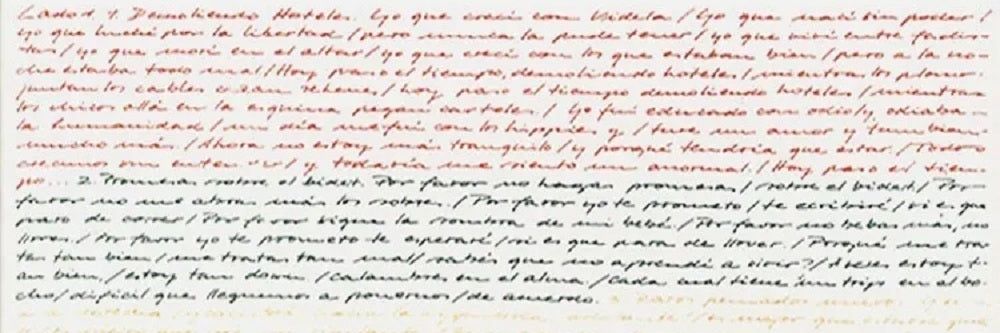 Lado 1. 1. Demoliendo Hoteles. Yo que crecí con Videla / Yo que nací sin poder /
yo que luché por la libertad / pero nunca la pude tener / yo que viví entre facis-
tas / yo que morí en el altar / yo que crecí con los que estaban bien / pero a la no-
che estaba todo mal / Hoy paso el tiempo, demoliendo hoteles / mientras los plomo-
juntan los cables cazan rehenes / hoy paso el tiempo demoliendo hoteles / mientras
los chicos allá en la esquina pegan carteles. / Yo fui educado con odio / y odiaba a
la humanidad / un día me fui con los hippies y / tuve un amor y tambien
mucho más. / Ahora no estoy más tranquilo / y porqué tendría que estar. / Todos
crecimos sin enten- / y todavía me siento un anormal. / Hoy paso el tiem-
po... 2. Promesas sobre el bidet. Por favor no hagas promesas / sobre el bidet / Por
favor no me abras más los sobres. / Por favor yo te prometo / te escribiré / si es que
paro de correr / Por favor sigue la sombra de mi bebé. / Por favor no bebas más, no
llores. / Por favor yo te prometo te esperaré / si es que para de llover. / Porqué me tra-
tas tan bien / me tratas tan mal / sabés que no aprendí a vivir? / A veces estoy t-
an bien, / estoy tan down. / Calambres en el alma. / Cada cual tiene un trip en el bo-
cho / difícil que lleguemos a ponernos / de acuerdo. 3. Raros peinados nuevos. Y si v-